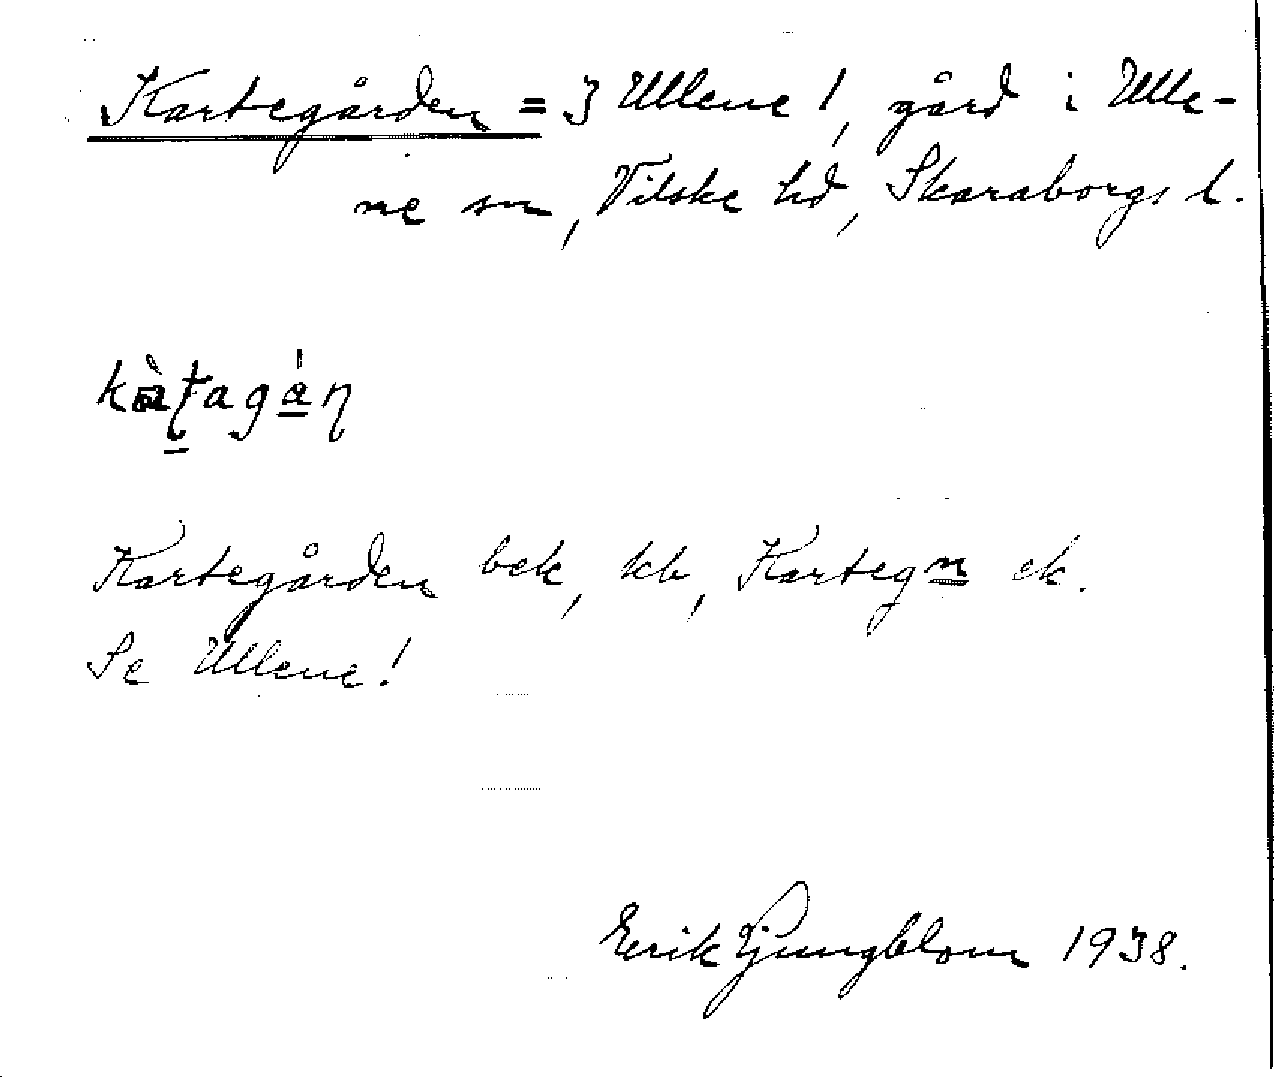 Kartegården = 3 Ullene!, gård i Ulle-
ne sn, Vilske hd, Skaraborgs l.
Kartegården bek, kb, Kartegn ek.
Se Ullene!
Erik Ljungblom 1938.